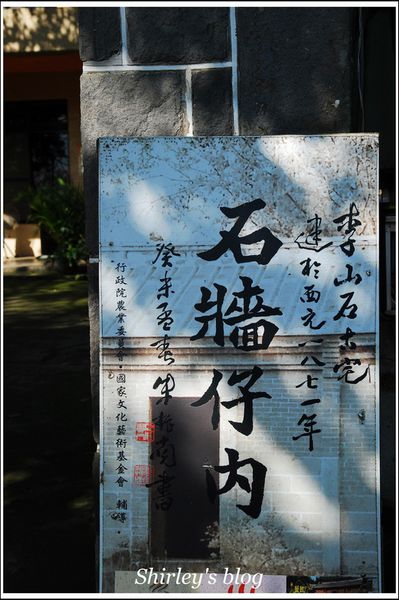 李山石古宅
建於西元一八七一年
石牆仔內
癸未孟春朱振南書
行政院農業委員會•國家文化藝術基金會 輔導
Shirley's blog